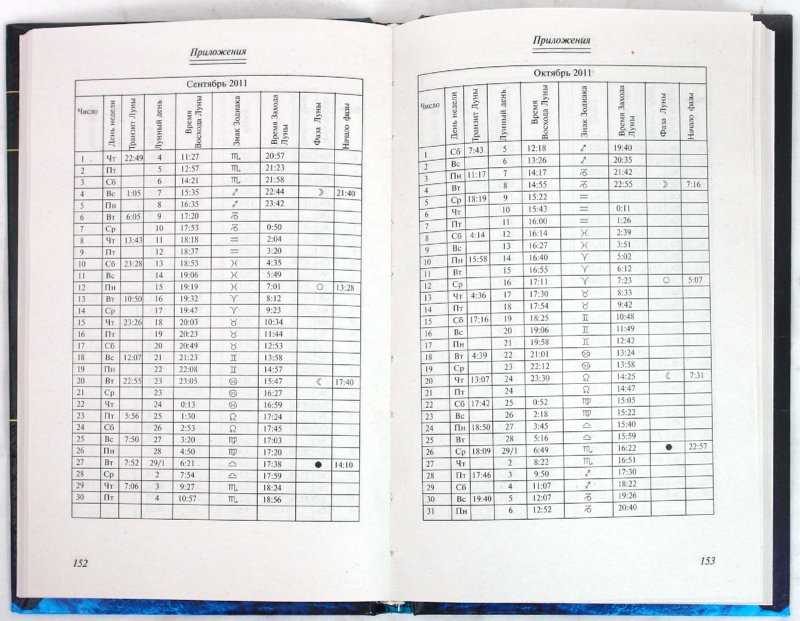 Приложения
Сентябрь 2011
Число День недели Транзит Луны Лунный день Время Восхода Луны Знак Зодиака Время Захода Луны Фаза Луны Начало фазы
1 Чт 22:49 4 11:27 ♏ 20:57
2 Пт 5 12:57 ♏ 21:23
3 Сб 6 14:21 ♏ 21:58
4 Вс 1:05 7 15:35 ♐ 22:44 ☽ 21:40
5 Пн 8 16:35 ♐ 23:42
6 Вт 6:05 9 17:20 ♑
7 Ср 10 17:53 ♑ 0:50
8 Чт 13:43 11 18:18 ♒ 2:04
9 Пт 12 18:37 ♒ 3:20
10 Сб 23:28 13 18:53 ♓ 4:35
11 Вс 14 19:06 ♓ 5:49
12 Пн 15 19:19 ♓ 7:01 ○ 13:28
13 Вт 10:50 16 19:32 ♈ 8:12
14 Ср 17 19:47 ♈ 9:23
15 Чт 23:26 18 20:03 ♉ 10:34
16 Пт 19 20:23 ♉ 11:44
17 Сб 20 20:49 ♉ 12:53
18 Вс 12:07 21 21:23 ♊ 13:58
19 Пн 22 22:08 ♊ 14:57
20 Вт 22:55 23 23:05 ♋ 15:47 ☾ 17:40
21 Ср 23 ♋ 16:27
22 Чт 24 0:13 ♋ 16:59
23 Пт 5:56 25 1:30 ♌ 17:24
24 Сб 26 2:53 ♌ 17:45
25 Вс 7:50 27 3:20 ♍ 17:03
26 Пн 28 4:50 ♍ 17:20
27 Вт 7:52 29/1 6:21 ♎ 17:38 ● 14:10
28 Ср 2 7:54 ♎ 17:59
29 Чт 7:06 3 9:27 ♏ 18:24
30 Пт 4 10:57 ♏ 18:56
152
Приложения
Октябрь 2011
Число День недели Транзит Луны Лунный день Время Восхода Луны Знак Зодиака Время Захода Луны Фаза Луны Начало фазы
1 Сб 7:43 5 12:18 ♐ 19:40
2 Вс 6 13:26 ♐ 20:35
3 Пн 11:17 7 14:17 ♑ 21:42
4 Вт 8 14:55 ♑ 22:55 ☽ 7:16
5 Ср 18:19 9 15:22 ♒
6 Чт 10 15:43 ♒ 0:11
7 Пт 11 16:00 ♒ 1:26
8 Сб 4:14 12 16:14 ♓ 2:39
9 Вс 13 16:27 ♓ 3:51
10 Пн 15:58 14 16:40 ♈ 5:02
11 Вт 15 16:55 ♈ 6:12
12 Ср 16 17:11 ♈ 7:23 ○ 5:07
13 Чт 4:36 17 17:30 ♉ 8:33
14 Пт 18 17:54 ♉ 9:42
15 Сб 17:16 19 18:25 ♊ 10:48
16 Вс 20 19:06 ♊ 11:49
17 Пн 21 19:58 ♊ 12:42
18 Вт 4:39 22 21:01 ♋ 13:24
19 Ср 23 22:12 ♋ 13:58
20 Чт 13:07 24 23:30 ♌ 14:25 ☾ 7:31
21 Пт 24 ♌ 14:47
22 Сб 17:42 25 0:52 ♍ 15:05
23 Вс 26 2:18 ♍ 15:22
24 Пн 18:50 27 3:45 ♎ 15:40
25 Вт 28 5:16 ♎ 15:59
26 Ср 18:09 29/1 6:49 ♏ 16:22 ● 22:57
27 Чт 2 8:22 ♏ 16:51
28 Пт 17:46 3 9:50 ♐ 17:30
29 Сб 4 11:07 ♐ 18:22
30 Вс 19:40 5 12:07 ♑ 19:26
31 Пн 6 12:52 ♑ 20:40
153